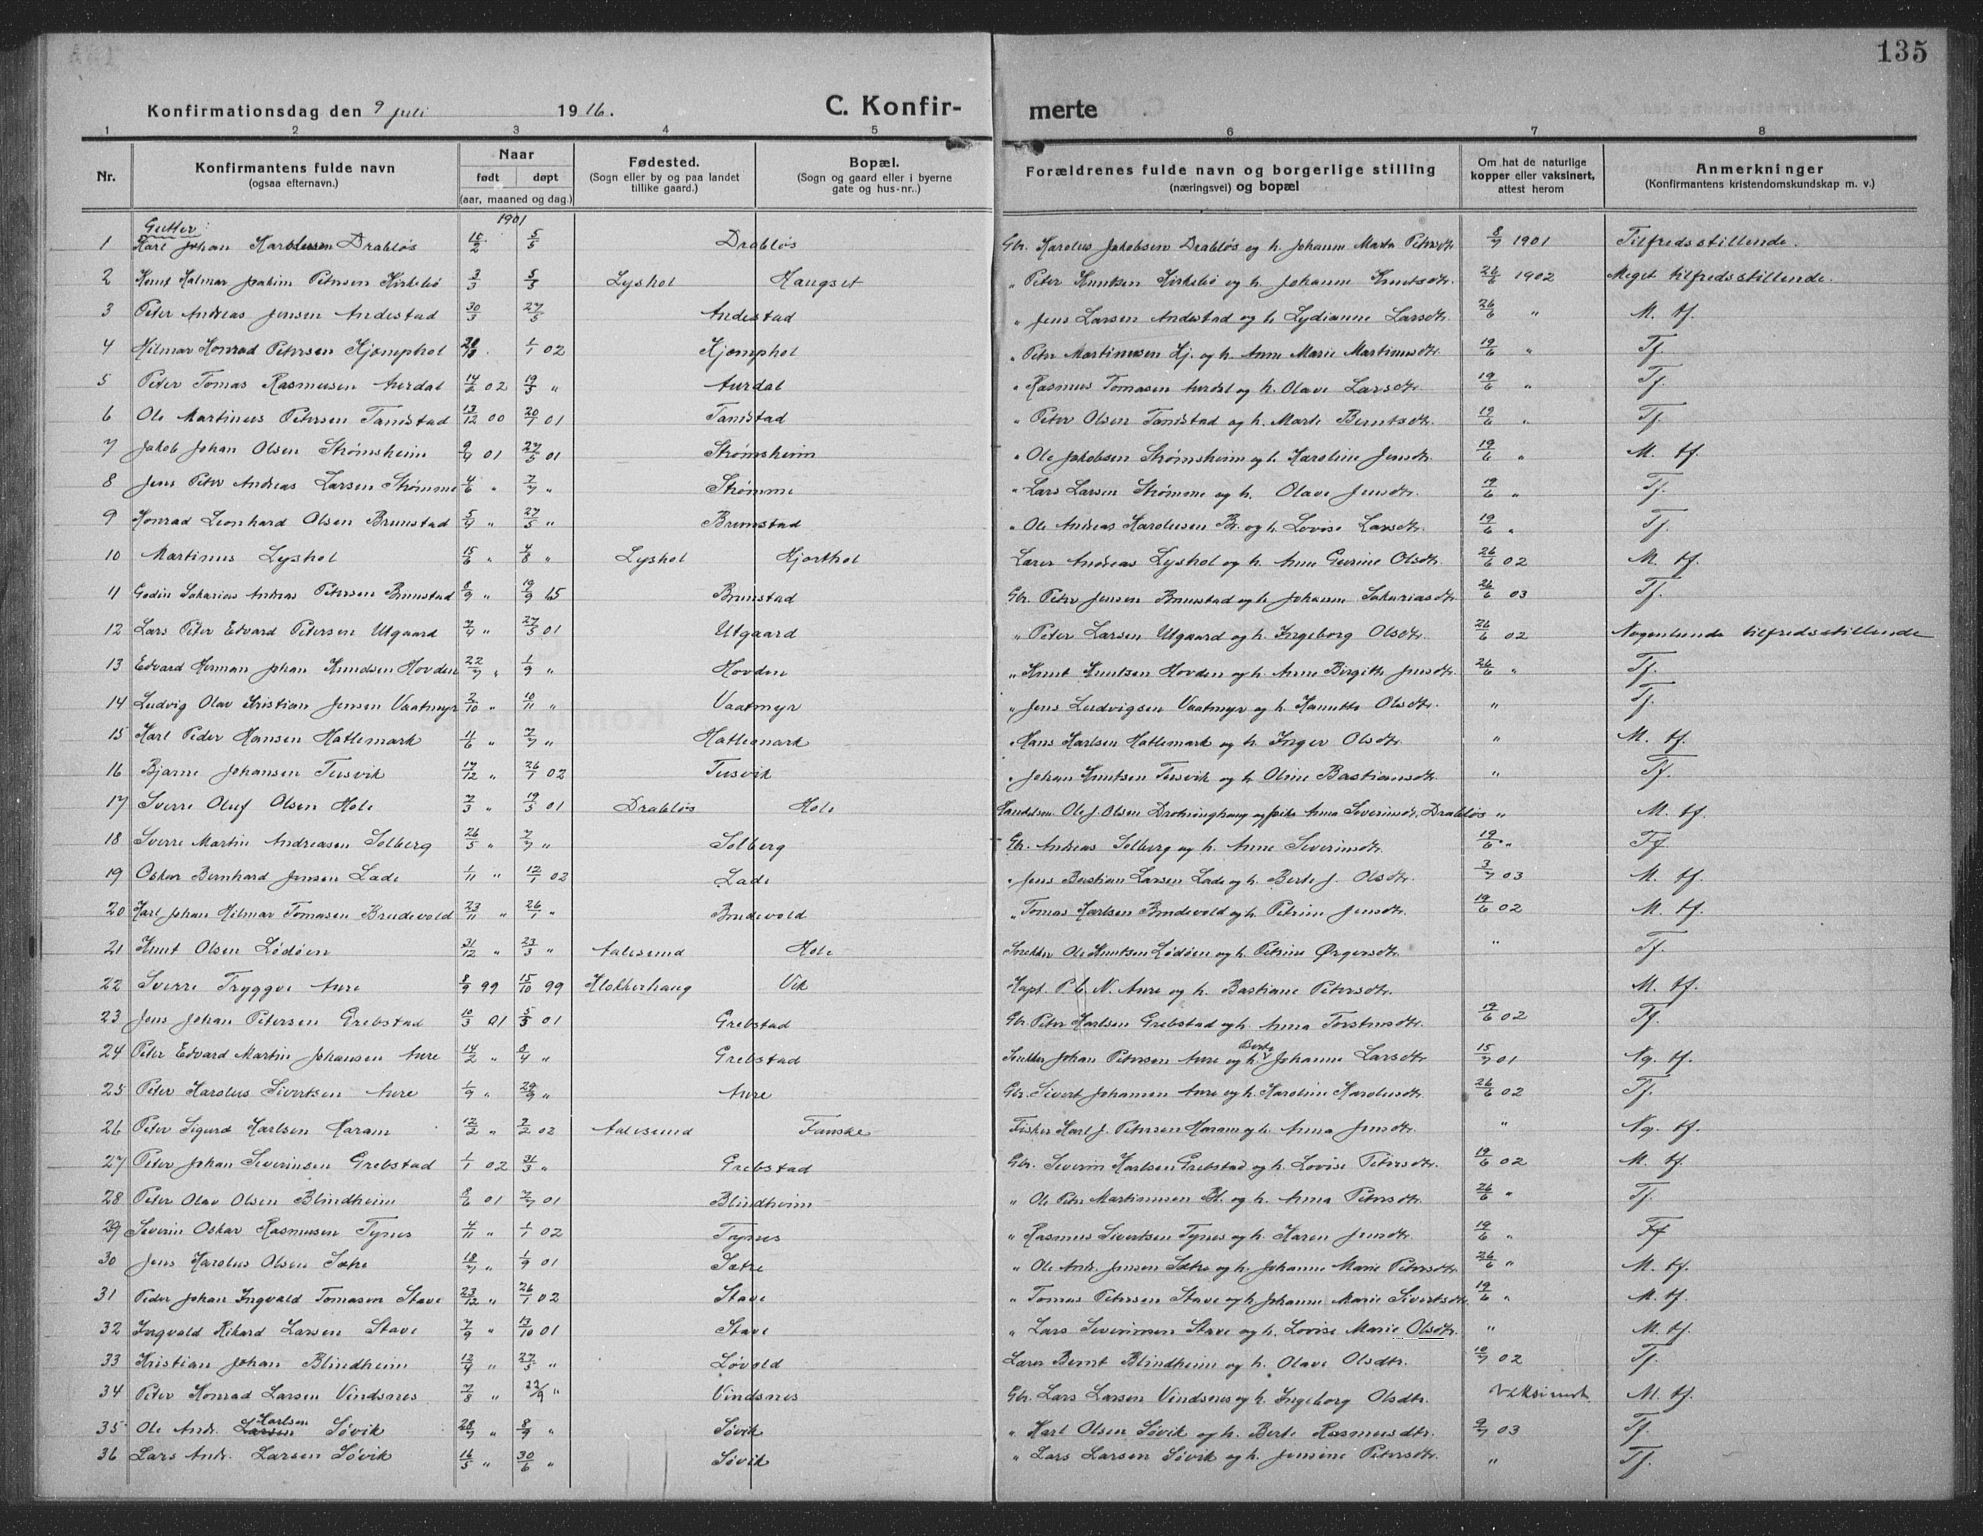 135
Konfirmationsdag den 9 juli 1916. C. Konfir- merte
1 2 3 4 5 6 7 8
Nr. Konfirmantens fulde navn (ogsaa efternavn.) Naar født døpt (aar, maaned og dag.) Fødested. (Sogn eller by og paa landet tillike gaard.) Bopæl. (Sogn og gaard eller i byerne gate og hus-nr.) Forældrenes fulde navn og borgerlige stilling (næringsvei) og bopæl Om hat de naturlige kopper eller vaksinert, attest herom Anmerkninger (Konfirmantens kristendomskundskap m. v.)
Gutter: 1901
1 Karl Johan Karolussen Drabløs 15/2 5/5 Drabløs Gbr. Karolus Jakobsen Drabløs og h. Johanne Marta Petersdtr. 8/7 1901 Tilfredsstillende.
2 Knut Halmar Joakim Petersen Kirkebø 3/3 5/5 Lyshol Haugset " Peter Knutsen Kirkebø og h. Johanne Knutsdtr. 26/6 1902 Meget tilfredsstillende.
3 Peter Andreas Jensen Andestad 30/3 27/5 Andestad " Jens Larsen Andestad og h. Lydianne Larsdtr. 26/6 " M. tf.
4 Hilmar Konrad Petersen Kjømphol 28/10 1/1 02 Kjømphol " Peter Martinusen Kj. og h. Anne Marie Martinusdtr. 19/6 " Tf.
5 Peter Tomas Rasmusen Aurdal 14/2 02 19/5 " Aurdal " Rasmus Tomasen Aurdal og h. Olave Larsdtr. 19/6 " Tf.
6 Ole Martinus Petersen Tandstad 13/12 00 20/1 01 Tandstad " Peter Olsen Tandstad og h. Marte Berntsdtr. 19/6 " Tf.
7 Jakob Johan Olsen Strømsheim 9/4 01 27/5 01 Strømsheim " Ole Jakobsen Strømsheim og h. Karoline Jensdtr. 19/6 " M. tf.
8 Jens Peter Andreas Larsen Strømme 4/6 " 7/7 " Strømme " Lars Larsen Strømme og h. Olave Jensdtr. 19/6 " Tf.
9 Konrad Leonhard Olsen Brunstad 5/4 " 27/5 " Brunstad " Ole Andreas Karolusen Br. og h. Lovise Larsdtr. 19/6 " Tf.
10 Martinus Lyshol 15/6 " 4/8 " Lyshol Hjorthol Lærer Andreas Lyshol og h. Anne Gurine Olsdtr. 26/6 02 M. tf.
11 Godin Sakarias Andreas Petersen Brunstad 8/9 " 19/9 15 Brunstad Gbr. Peter Jensen Brunstad og h. Johanne Sakariasdtr. 26/6 03 Tf.
12 Lars Peter Edvard Petersen Utgaard 7/4 " 27/5 01 Utgaard " Peter Larsen Utgaard og h. Ingeborg Olsdtr. 26/6 02 Nogenlunde tilfredsstillende
13 Edvard Herman Johan Knudsen Hovden 22/7 " 1/9 " Hovden " Knut Knutsen Hovden og h. Anne Birgitte Jensdtr. 26/6 " Tf.
14 Ludvig Olav Kristian Jensen Vaatmyr 2/10 " 10/11 " Vaatmyr " Jens Ludvigsen Vaatmyr og h. Hanette Olsdtr. " Tf.
15 Karl Peder Hansen Hatlemark 11/6 " 7/7 " Hatlemark " Hans Karlsen Hatlemark og h. Inger Olsdtr. " M. tf.
16 Bjarne Johansen Tusvik 17/12 " 26/1 02 Tusvik " Johan Knutsen Tusvik og h. Oline Bastiansdtr. " Tf.
17 Sverre Oluf Olsen Hole 7/3 " 19/5 01 Drabløs Hole Handelsm. Ole J. Olsen Dronninghaug og pike Anna Severinsdtr. Drabløs " M. tf.
18 Sverre Martin Andreasen Solberg 26/5 " 7/7 " Solberg Gbr. Andreas Solberg og h. Anne Severinsdtr. 19/6 " Tf.
19 Oskar Bernhard Jensen Lade 1/11 " 12/1 02 Lade " Jens Bastian Larsen Lade og h. Berte J. Olsdtr. 3/7 03 M. tf.
20 Karl Johan Hilmar Tomasen Brudevold 23/11 " 26/1 " Brudevold " Tomas Karlsen Brudevold og h. Petrine Jensdtr. 19/6 02 M. tf.
21 Knut Olsen Lødøen 31/12 " 23/3 " Aalesund Hole Snekker Ole Knutsen Lødøen og h. Petrine Ørgersdtr. " Tf.
22 Sverre Tryggve Aure 8/9 99 15/10 99 Klokkerhaug Vik Kapt. P. C. N. Aure og h. Bastiane Petersdtr. M. tf.
23 Jens Johan Petersen Grebstad 10/3 01 5/5 01 Grebstad Gbr. Peter Karlsen Grebstad og h. Anna Torstensdtr. 19/6 02 Tf.
24 Peter Edvard Martin Johansen Aure 14/2 " 8/4 " Grebstad Snekker Johan Petersen Aure og h. Berte Johanne Larsdtr. 15/7 01 Ng. tf.
25 Peter Karolus Sivertsen Aure 1/9 " 29/9 " Aure Gbr. Sivert Johansen Aure og h. Karoline Karolusdtr. 26/6 02 Tf.
26 Peter Sigurd Karlsen Haram 12/2 " 2/2 02 Aalesund Fauske Fisker Karl J. Petersen Haram og h. Anna Jensdtr. " Ng. tf.
27 Peter Johan Severinsen Grebstad 1/1 02 31/3 " Grebstad Gbr. Severin Karlsen Grebstad og h. Lovise Petersdtr. 19/6 02 M. tf.
28 Peter Olav Olsen Blindheim 8/6 01 7/7 01 Blindheim " Ole Peter Martinusen Bl. og h. Anna Petersdtr. 26/6 " Tf.
29 Severin Oskar Rasmusen Tynes 4/11 " 1/1 02 Tynes " Rasmus Sivertsen Tynes og h. Karen Jensdtr. 19/6 " Tf
30 Jens Karolus Olsen Sætre 18/7 " 1/9 01 Sætre " Ole Andr. Jensen Sætre og h. Johanne Marie Petersdtr. 26/6 " M. tf.
31 Peder Johan Ingvald Tomasen Stave 23/12 " 26/1 02 Stave " Tomas Petersen Stave og h. Johanne Marie Sivertsdtr. 19/6 " M. tf.
32 Ingvald Rikard Larsen Stave 7/9 " 13/10 01 Stave " Lars Severinsen Stave og h. Lovise Marie Olsdtr. " M. tf.
33 Kristian Johan Blindheim 12/4 " 27/5 " Løvold Lærer Bernt Blindheim og h. Olave Olsdtr. 10/7 02 Tf.
34 Peter Konrad Larsen Vindsnes 7/8 " 22/9 " Vindsnes Gbr. Lars Larsen Vindsnes og h. Ingeborg Olsdtr. Vaksinert. M. tf.
35 Ole Andr. Larsen Karlsen Søvik 28/7 " 8/9 " Søvik " Karl Olsen Søvik og h. Berte Rasmusdtr. 9/7 03 Tf.
36 Lars Andr. Larsen Søvik 16/5 " 30/6 " Søvik " Lars Larsen Søvik og h. Jensine Petersdtr. " Tf.